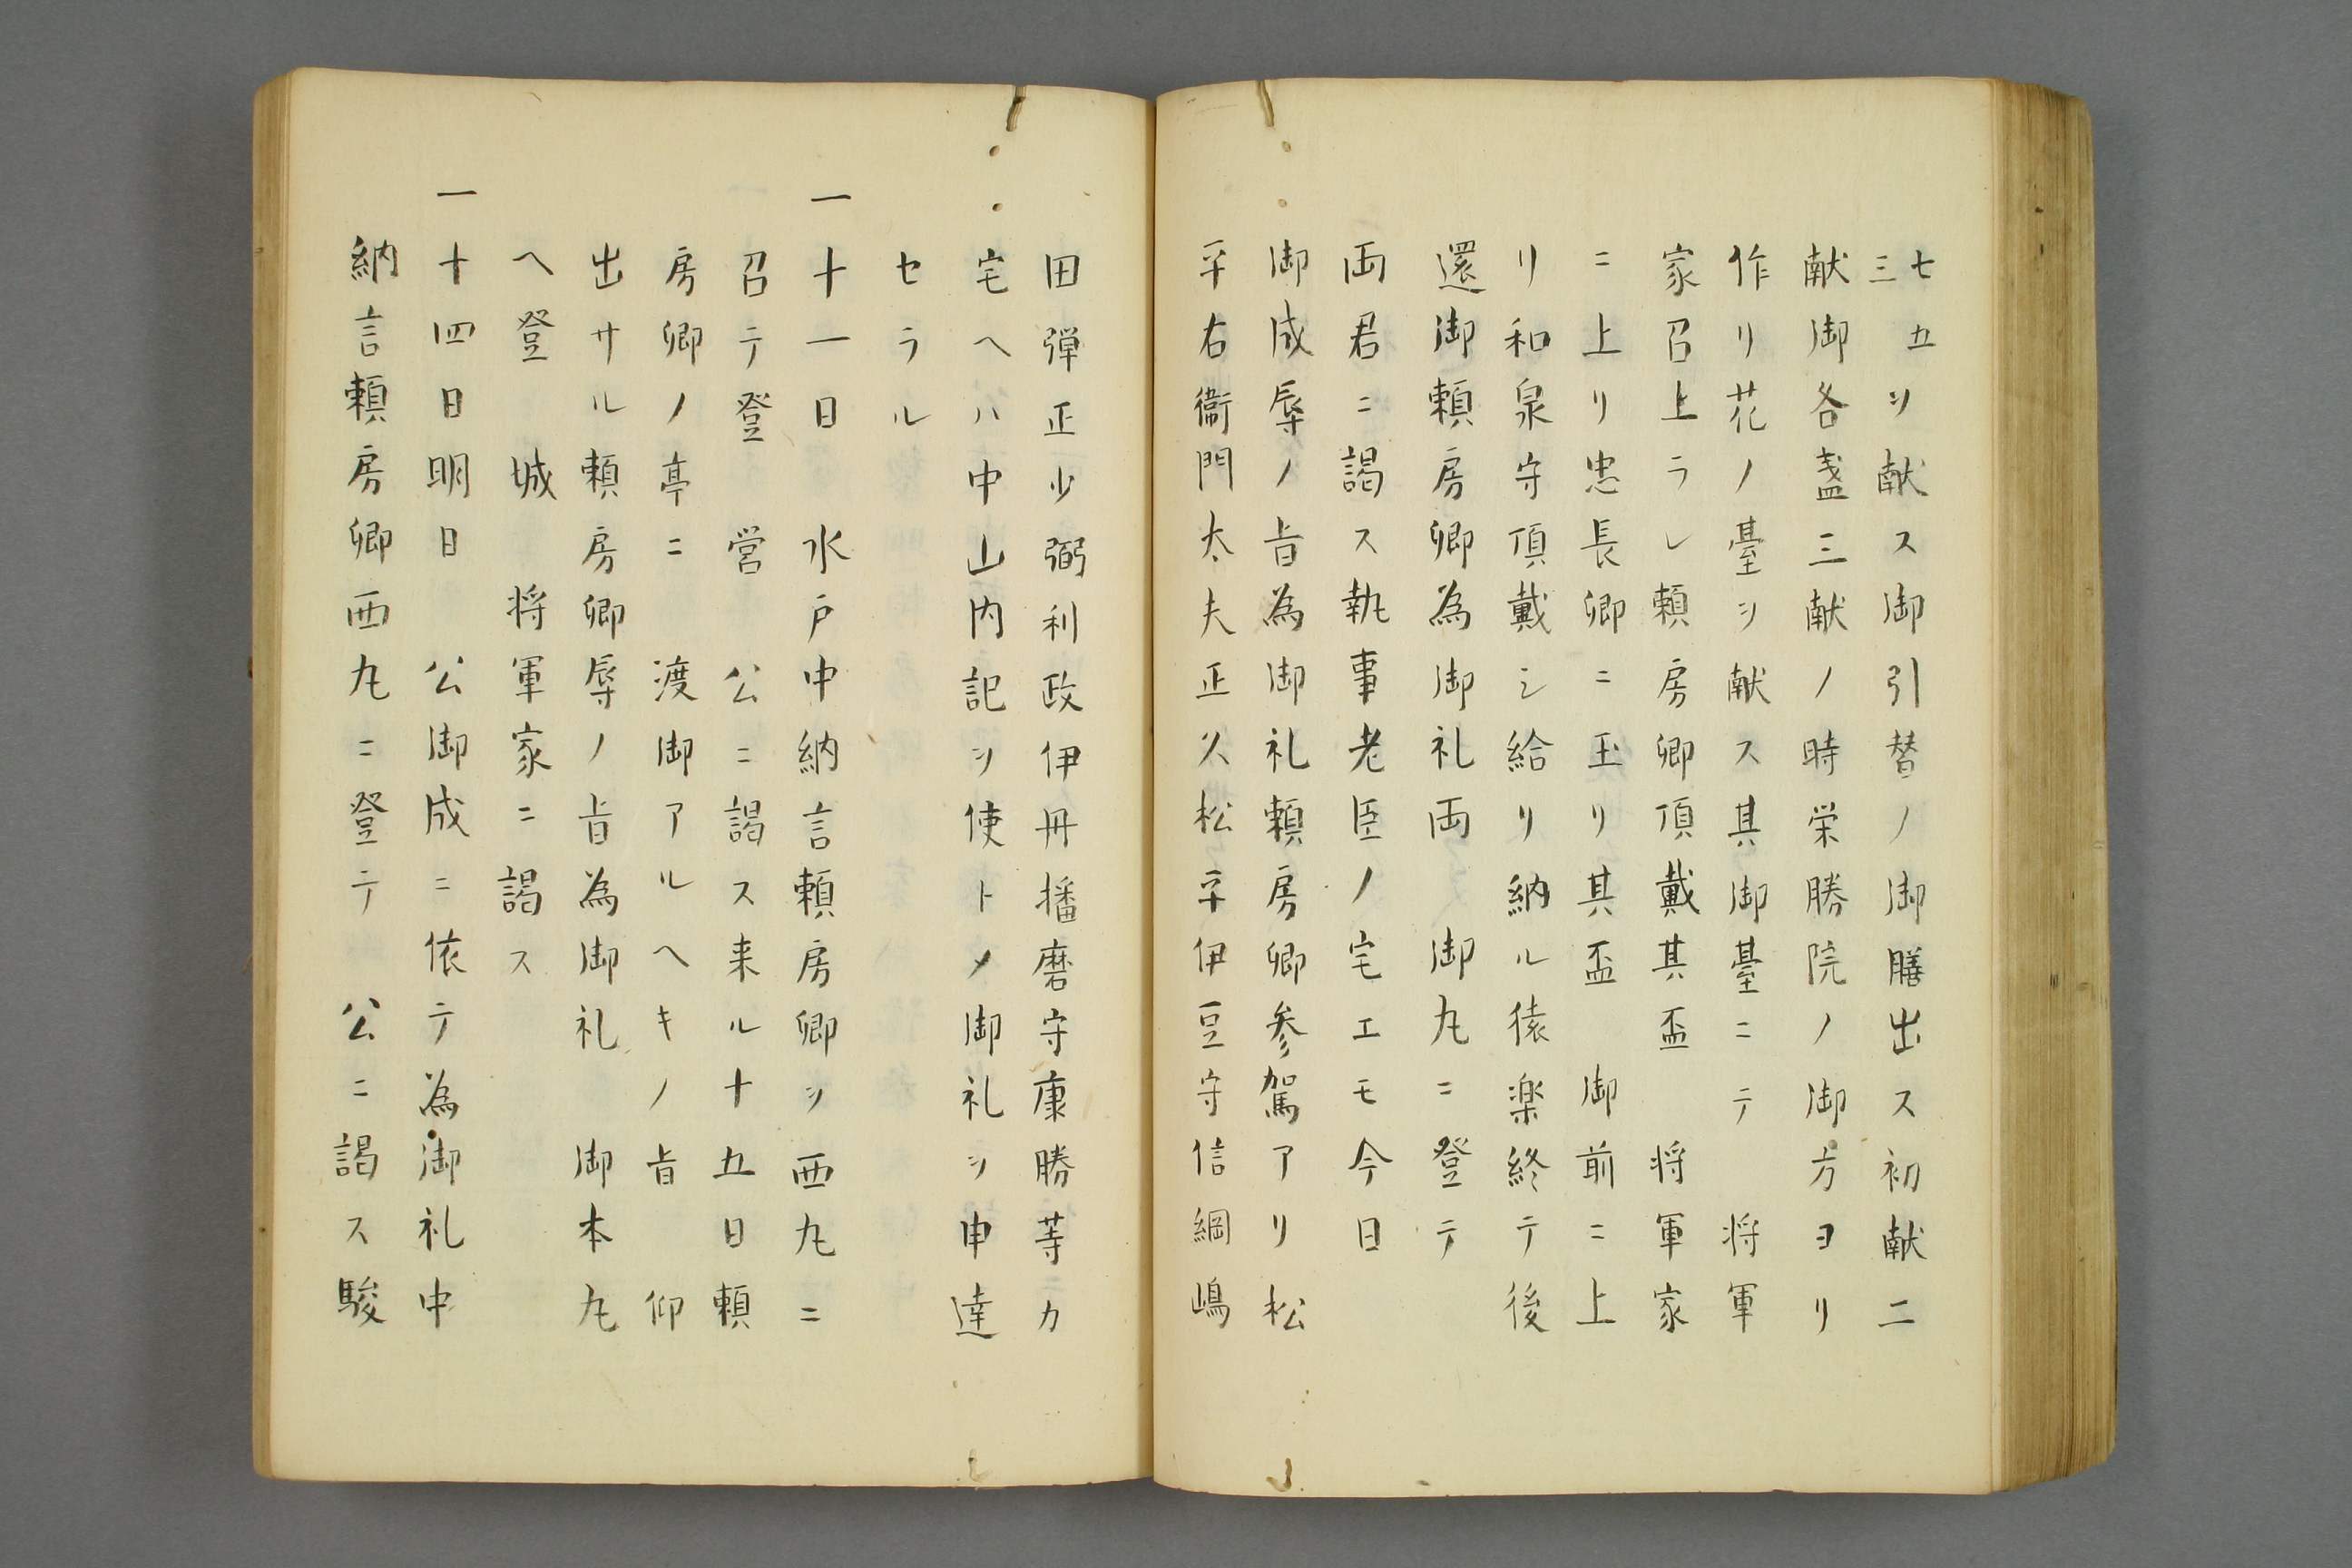 七五三ヲ献ス御引替ノ御膳出ス初献二
献御各盞三献ノ時栄勝院ノ御方ヨリ
作リ花ノ臺ヲ献ス其御臺ニテ　将軍
家召上ラレ頼房卿頂戴其盃　将軍家
ニ上リ忠長卿ニ玉リ其盃　御前ニ上
リ和泉守頂戴シ給リ納ル猿楽終テ後
還御頼房卿為御礼両　御丸ニ登テ
両君ニ謁ス執事老臣ノ宅エモ今日
御成辱ノ旨為御礼頼房卿参駕アリ松
平右衞門太夫正久松平伊豆守信綱嶋
田弾正少弼利政伊丹播磨守康勝等ニカ
宅ヘハ中山内記ヲ使トメ御礼ヲ申達
セラル
一十一日　水戸中納言頼房卿ヲ西丸ニ
召テ登　営　公ニ謁ス来ル十五日頼
房卿ノ亭ニ　渡御アルヘキノ旨　仰
出サル頼房卿辱ノ旨為御礼　御本丸
ヘ登　城　将軍家ニ謁ス
一十四日明日　公御成ニ依テ為御礼中
納言頼房卿西丸ニ登テ　公ニ謁ス駿